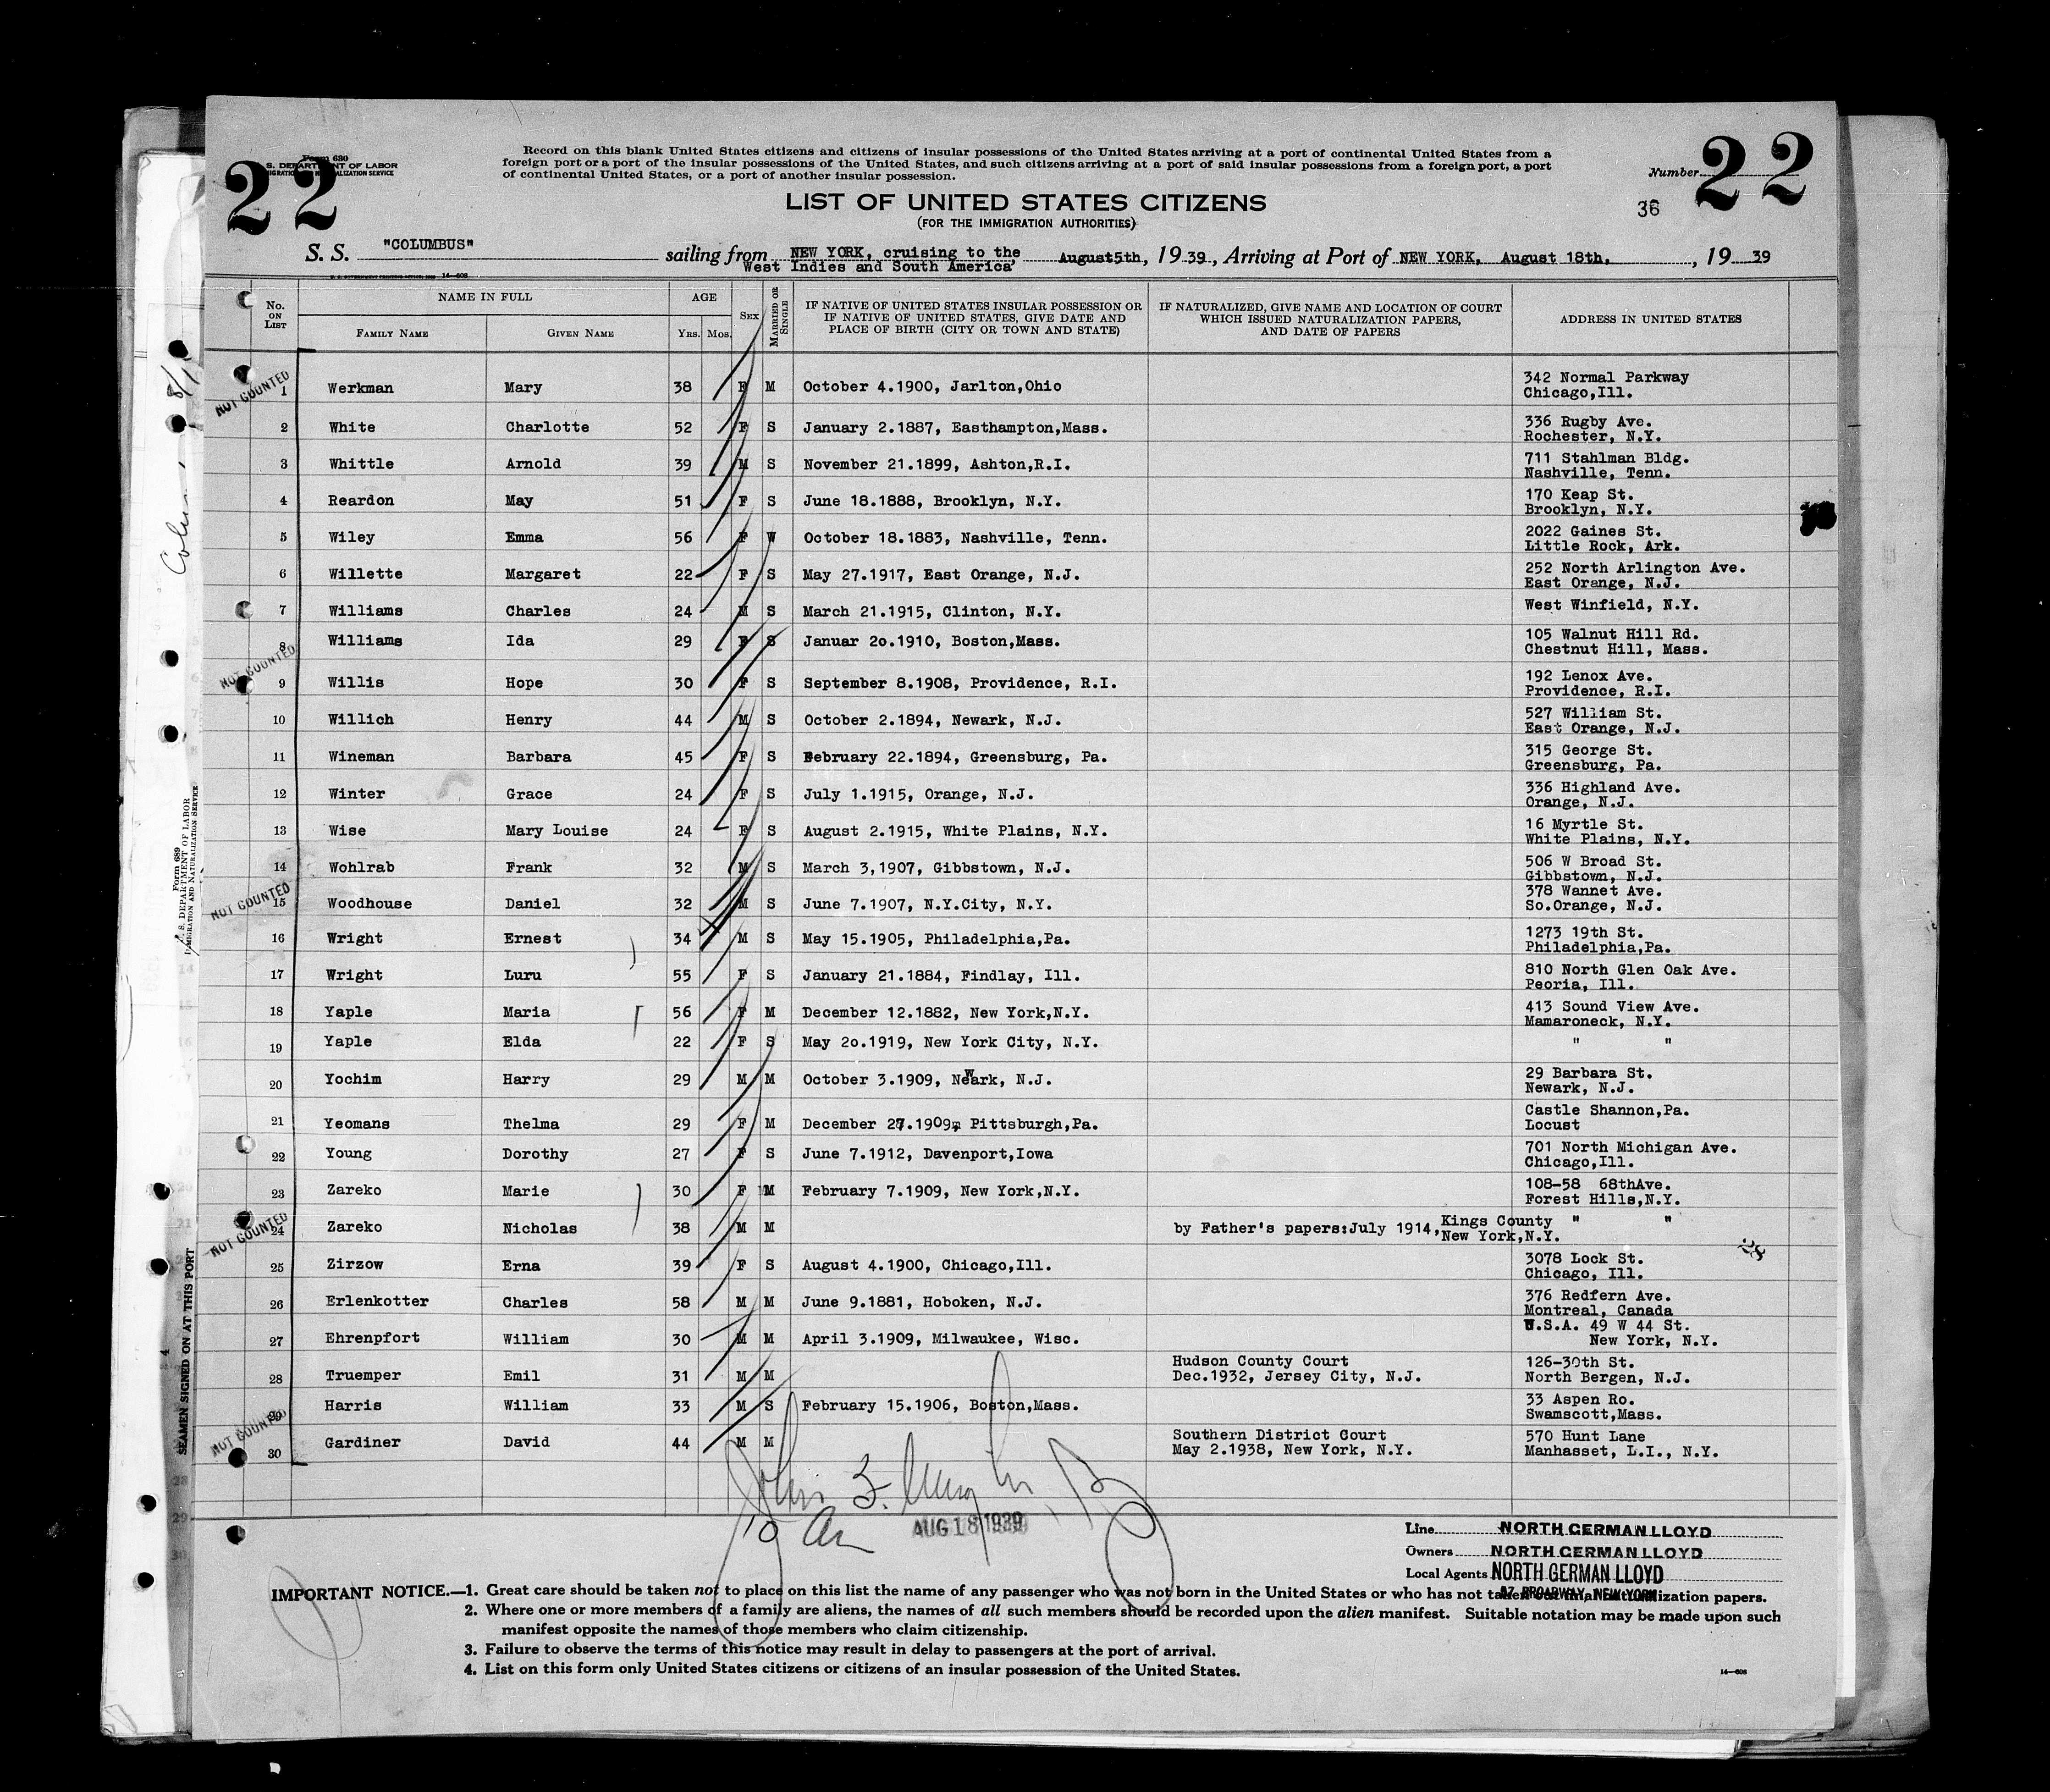 22
Form 630
S. DEPARTMENT OF LABOR
Record on this blank United States citizens and citizens of insular possessions of the United States arriving at a port of continental United States from a
foreign port or a port of the insular possessions of the United States, and such citizens arriving at a port of said insular possessions from a foreign port, a port
of continental United States, or a port of another insular possession.
Number 22
LIST OF UNITED STATES CITIZENS
(FOR THE IMMIGRATION AUTHORITIES)
36
S. S. "COLUMBUS" sailing from NEW YORK, cruising to the August5th, 19 39, Arriving at Port of NEW YORK, August 18th, , 19 39
West Indies and South America,
No. ON LIST
NAME IN FULL
FAMILY NAME GIVEN NAME
AGE
YRS. MOS.
SEX
MARRIED OR SINGLE
IF NATIVE OF UNITED STATES INSULAR POSSESSION OR
IF NATIVE OF UNITED STATES, GIVE DATE AND
PLACE OF BIRTH (CITY OR TOWN AND STATE)
IF NATURALIZED, GIVE NAME AND LOCATION OF COURT
WHICH ISSUED NATURALIZATION PAPERS,
AND DATE OF PAPERS
ADDRESS IN UNITED STATES
NOT COUNTED
1 Werkman Mary 38 F M October 4.1900, Jarlton,Ohio 342 Normal Parkway
Chicago,Ill.
2 White Charlotte 52 F S January 2.1887, Easthampton,Mass. 336 Rugby Ave.
Rochester, N.Y.
3 Whittle Arnold 39 M S November 21.1899, Ashton,R.I. 711 Stahlman Bldg.
Nashville, Tenn.
4 Reardon May 51 F S June 18.1888, Brooklyn, N.Y. 170 Keap St.
Brooklyn, N.Y.
5 Wiley Emma 56 F W October 18.1883, Nashville, Tenn. 2022 Gaines St.
Little Rock, Ark.
6 Willette Margaret 22 F S May 27.1917, East Orange, N.J. 252 North Arlington Ave.
East Orange, N.J.
7 Williams Charles 24 M S March 21.1915, Clinton, N.Y. West Winfield, N.Y.
8 Williams Ida 29 F S Januar 2o.1910, Boston,Mass. 105 Walnut Hill Rd.
Chestnut Hill, Mass.
NOT COUNTED
9 Willis Hope 30 F S September 8.1908, Providence, R.I. 192 Lenox Ave.
Providence, R.I.
10 Willich Henry 44 M S October 2.1894, Newark, N.J. 527 William St.
East Orange, N.J.
11 Wineman Barbara 45 F S February 22.1894, Greensburg, Pa. 315 George St.
Greensburg, Pa.
12 Winter Grace 24 F S July 1.1915, Orange, N.J. 336 Highland Ave.
Orange, N.J.
13 Wise Mary Louise 24 F S August 2.1915, White Plains, N.Y. 16 Myrtle St.
White Plains, N.Y.
14 Wohlrab Frank 32 M S March 3,1907, Gibbstown, N.J. 506 W Broad St.
Gibbstown, N.J.
NOT COUNTED
15 Woodhouse Daniel 32 M S June 7.1907, N.Y.City, N.Y. 378 Wannet Ave.
So.Orange, N.J.
16 Wright Ernest 34 M S May 15.1905, Philadelphia,Pa. 1273 19th St.
Philadelphia,Pa.
17 Wright Luru 55 F S January 21.1884, Findlay, Ill. 810 North Glen Oak Ave.
Peoria, Ill.
18 Yaple Maria 56 F M December 12.1882, New York,N.Y. 413 Sound View Ave.
Mamaroneck, N.Y.
19 Yaple Elda 22 F S May 2o.1919, New York City, N.Y. " "
20 Yochim Harry 29 M M October 3.1909, Newark, N.J. 29 Barbara St.
Newark, N.J.
21 Yeomans Thelma 29 F M December 27.1909, Pittsburgh,Pa. Castle Shannon,Pa.
Locust
22 Young Dorothy 27 F S June 7.1912, Davenport,Iowa 701 North Michigan Ave.
Chicago,Ill.
23 Zareko Marie 30 F M February 7.1909, New York,N.Y. 108-58 68thAve.
Forest Hills,N.Y.
NOT COUNTED
24 Zareko Nicholas 38 M M by Father's papers:July 1914, Kings County " "
New York,N.Y.
28
25 Zirzow Erna 39 F S August 4.1900, Chicago,Ill. 3078 Lock St.
Chicago, Ill.
26 Erlenkotter Charles 58 M M June 9.1881, Hoboken, N.J. 376 Redfern Ave.
Montreal, Canada
27 Ehrenpfort William 30 M M April 3.1909, Milwaukee, Wisc. U.S.A. 49 W 44 St.
New York, N.Y.
28 Truemper Emil 31 M M Hudson County Court 126-30th St.
Dec.1932, Jersey City, N.J. North Bergen, N.J.
29 Harris William 33 M S February 15.1906, Boston,Mass. 33 Aspen Ro.
Swamscott,Mass.
NOT COUNTED
30 Gardiner David 44 M M Southern District Court 570 Hunt Lane
May 2.1938, New York, N.Y. Manhasset, L.I., N.Y.
John
AUG 18 1939
Line NORTH GERMAN LLOYD
Owners NORTH GERMAN LLOYD
Local Agents NORTH GERMAN LLOYD
57 BROADWAY, NEW YORK
IMPORTANT NOTICE.—1. Great care should be taken not to place on this list the name of any passenger who was not born in the United States or who has not taken out final naturalization papers.
2. Where one or more members of a family are aliens, the names of all such members should be recorded upon the alien manifest. Suitable notation may be made upon such
manifest opposite the names of those members who claim citizenship.
3. Failure to observe the terms of this notice may result in delay to passengers at the port of arrival.
4. List on this form only United States citizens or citizens of an insular possession of the United States.
14—608
Form 689
U. S. DEPARTMENT OF LABOR
IMMIGRATION AND NATURALIZATION SERVICE
SEAMEN SIGNED ON AT THIS PORT